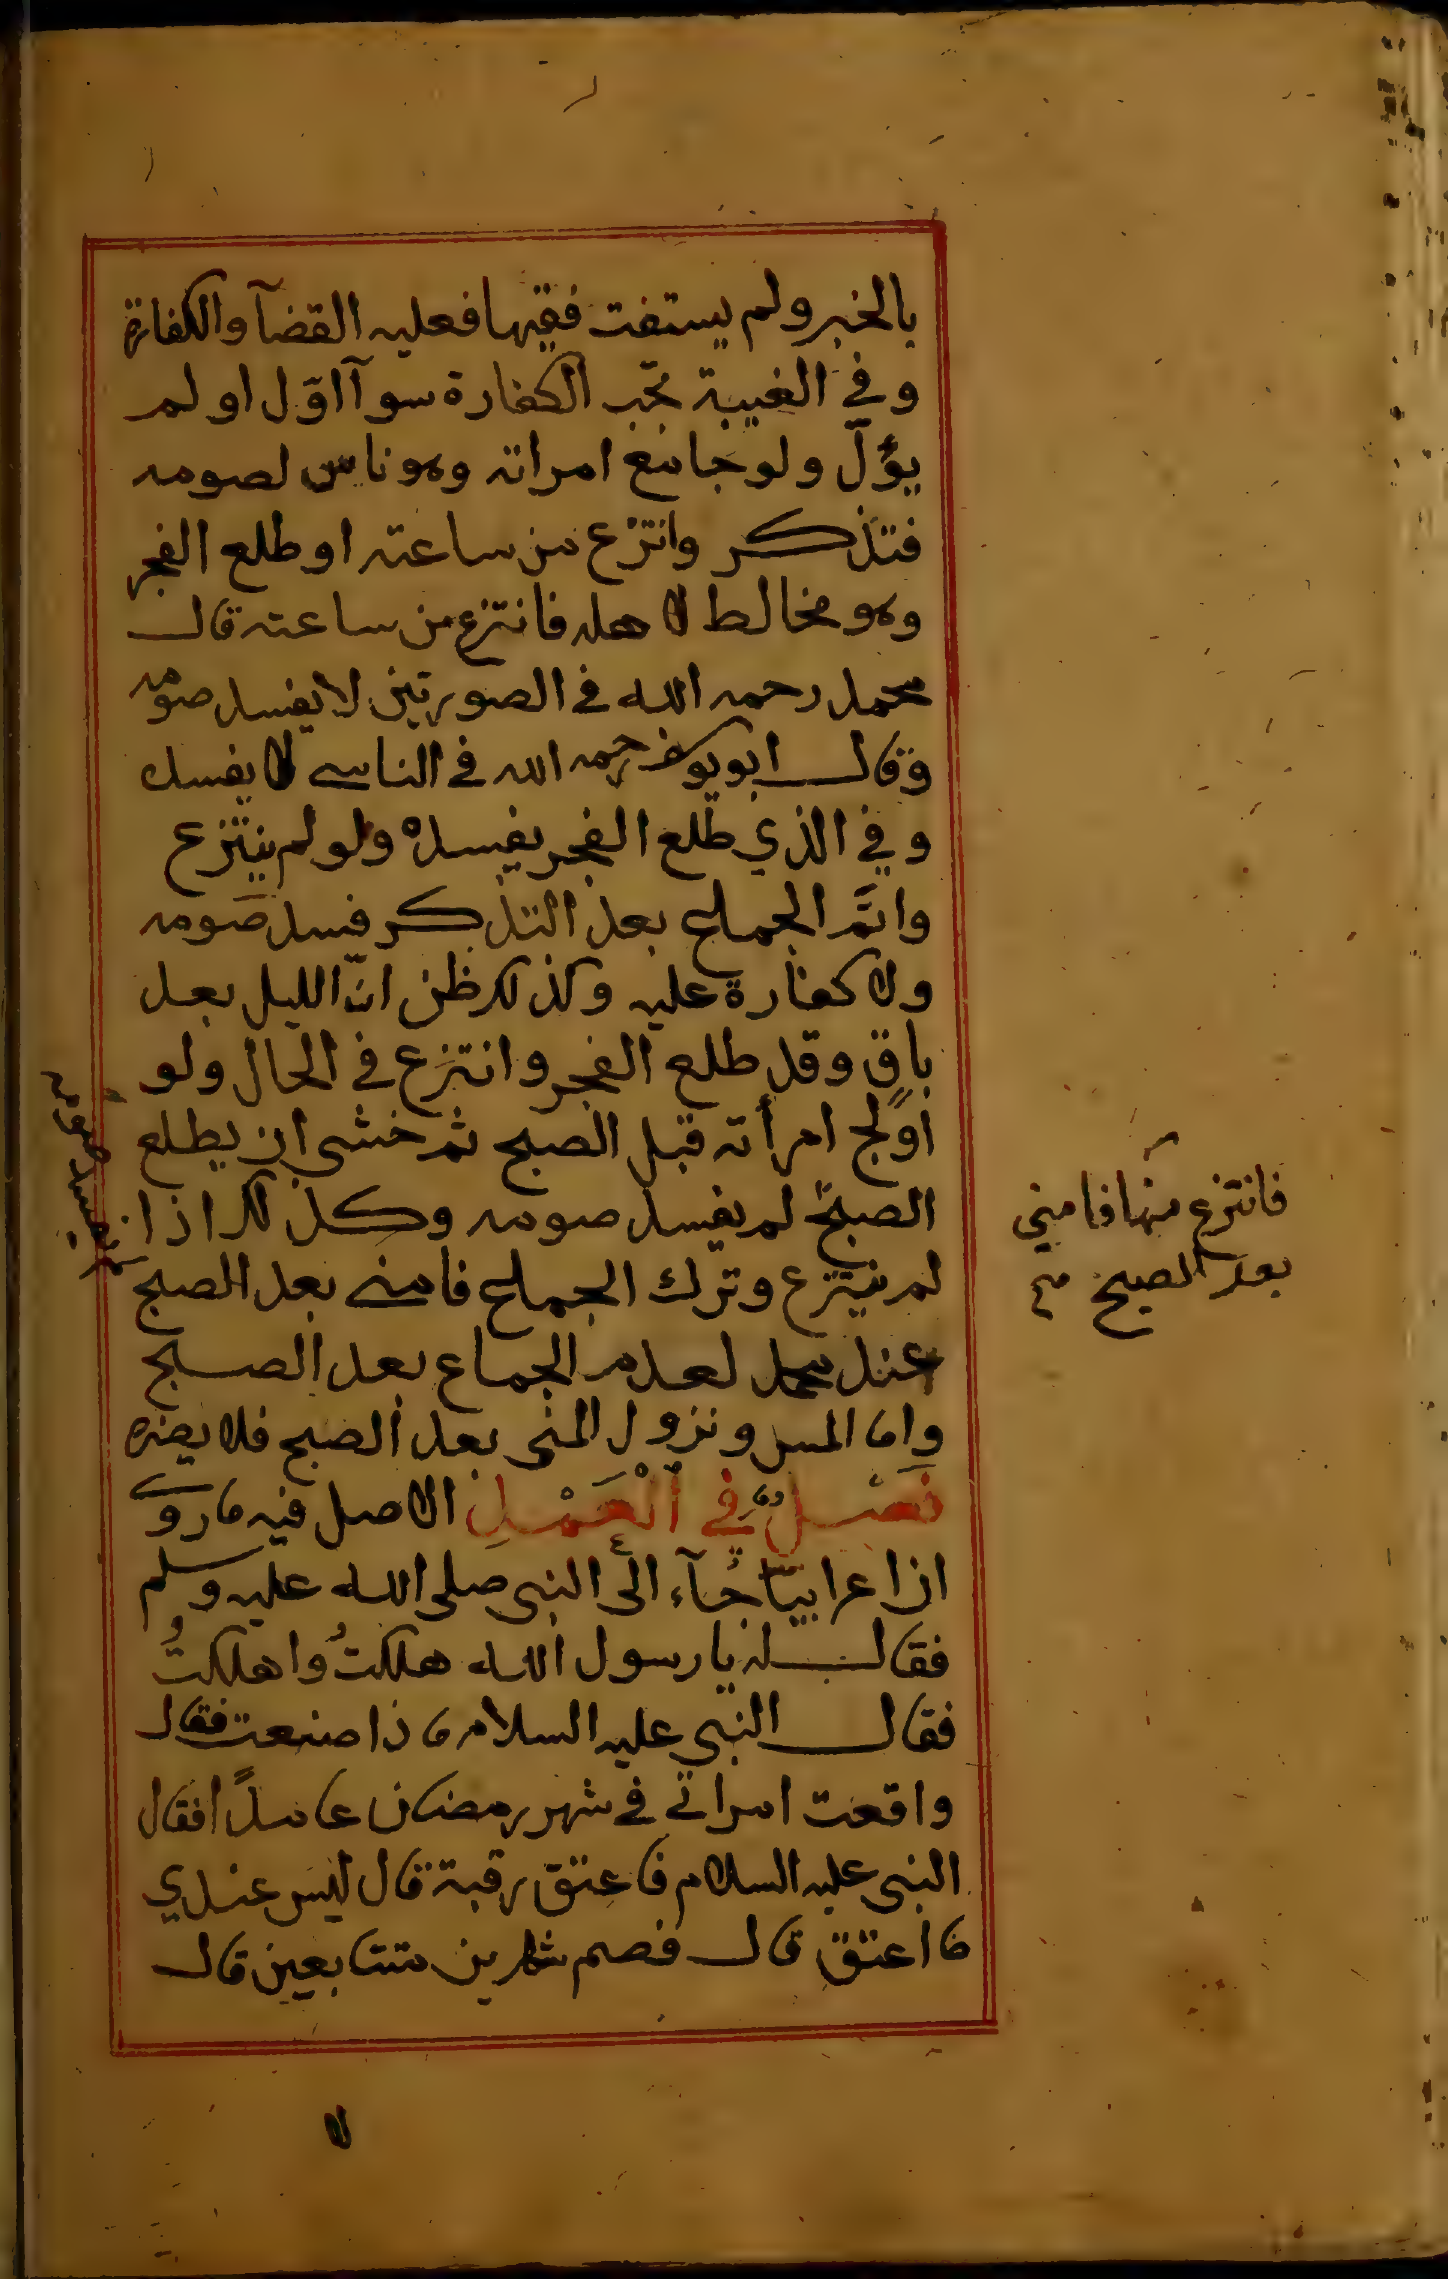 بالخبر ولم يستفت فقيها فعليه القضآ والكفارة
وفي الغيبة تجب الكفارة سوآ اوّل او لم
يؤل ولو جامع امراته وهو ناس لصومه
فتذكر وانتزع من ساعته او طلع الفجر
وهو مخالط لاهله فانتزع من ساعته قال
محمد رحمه الله في الصورتين لا يفسد صومه
وقال ابويوسف رحمه الله في الناسي لا يفسد
وفي الذي طلع الفجر يفسده ولو لم ينتزع
واتم الجماع بعد التذكر فسد صومه
ولا كفارة عليه وكذلك ظن انّ الليل بعد
باقٍ وقد طلع الفجر وانتزع في الحال ولو
اولج امرأته قبل الصبح ثم خشى ان يطلع
الصبح لم يفسد صومه وكذلك اذا
لم ينتزع وترك الجماع فامنى بعد الصبح
عند محمد لعدم الجماع بعد الصبح
واما المس ونزول المنى بعد الصبح فلا يضره
فصل في العمد الاصل فيه ما روى
ان اعرابيّا جآء الى النبي صلى الله عليه وسلم
فقال له يا رسول الله هلكتُ واهلكتُ
فقال النبي عليه السلام ما ذا صنعت فقال
واقعت امراتي في شهر رمضان عامدًا فقال
النبي عليه السلام فاعتق رقبة قال ليس عندي
ما اعتق قال فصم شهرين متتابعين قال
فانتزع منها فامنى
بعد الصبح
لا
لم يفسد صومه